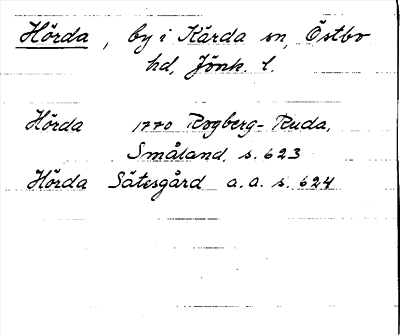 Hörda, by i Kärda sn, Östbo
hd, Jönk. l.
Hörda 1770 Rogberg-Ruda,
Småland, s. 623
Hörda Sätesgård a.a. s. 624